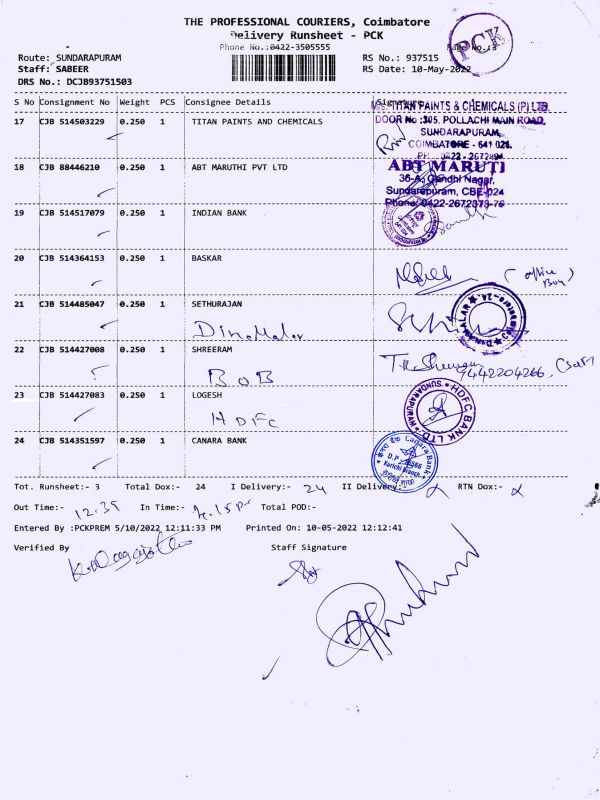 THE PROFESSIONAL COURIERS, Coimbatore
Delivery Runsheet - PCK
Phone No.:0422-3505555
Page No.:3
PCK
Route: SUNDARAPURAM
RS No.: 937515
Staff: SABEER
RS Date: 10-May-2022
DRS No.: DCJB93751503
S No Consignment No Weight PCS Consignee Details Signature
17 CJB 514503229 0.250 1 TITAN PAINTS AND CHEMICALS
TITAN PAINTS & CHEMICALS (P) LTD.
DOOR No :305, POLLACHI MAIN ROAD,
SUNDARAPURAM,
COIMBATORE - 641 024.
18 CJB 88446210 0.250 1 ABT MARUTHI PVT LTD
ABT MARUTI
36-A, Gandhi Nagar,
Sundarapuram, CBE-024
Phone: 0422-2672373-76
19 CJB 514517079 0.250 1 INDIAN BANK
20 CJB 514364153 0.250 1 BASKAR
(office Boy)
21 CJB 514485047 0.250 1 SETHURAJAN
Dinamalar
22 CJB 514427008 0.250 1 SHREERAM
BOB
9442204266
23 CJB 514427083 0.250 1 LOGESH
HDFC
HDFC BANK LTD
SUNDARAPURAM
24 CJB 514351597 0.250 1 CANARA BANK
Canara Bank
Tot. Runsheet:- 3 Total Dox:- 24 I Delivery:- 24 II Delivery:- RTN Dox:-
Out Time:- 12.35 In Time:- Total POD:-
Entered By :PCKPREM 5/10/2022 12:11:33 PM Printed On: 10-05-2022 12:12:41
Verified By Staff Signature